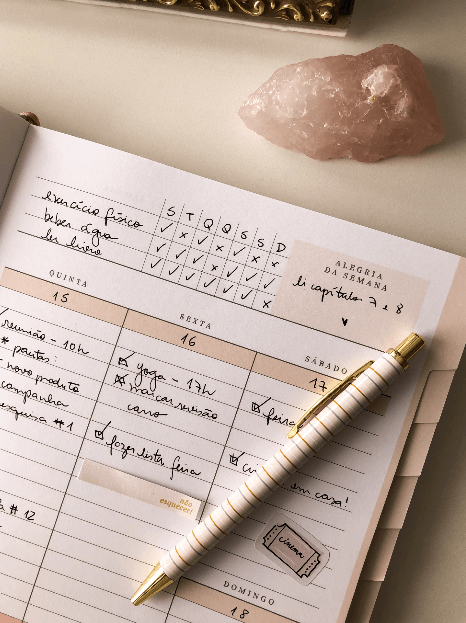 S T Q Q S S D
exercício físico ✓ x ✓ ✓ ✓ x x
beber água ✓ ✓ ✓ x ✓ ✓ ✓
ler livro ✓ ✓ ✓ ✓ ✓ ✓ x
ALEGRIA
DA SEMANA
li capítulo 7 e 8
QUINTA
15
reunião - 10h
* pautas:
novo produto
campanha
#1
#12
SEXTA
16
yoga - 17h
marcar revisão
carro
fazer lista feira
não
esquecer!
SÁBADO
17
feira
em casa!
cinema
DOMINGO
18